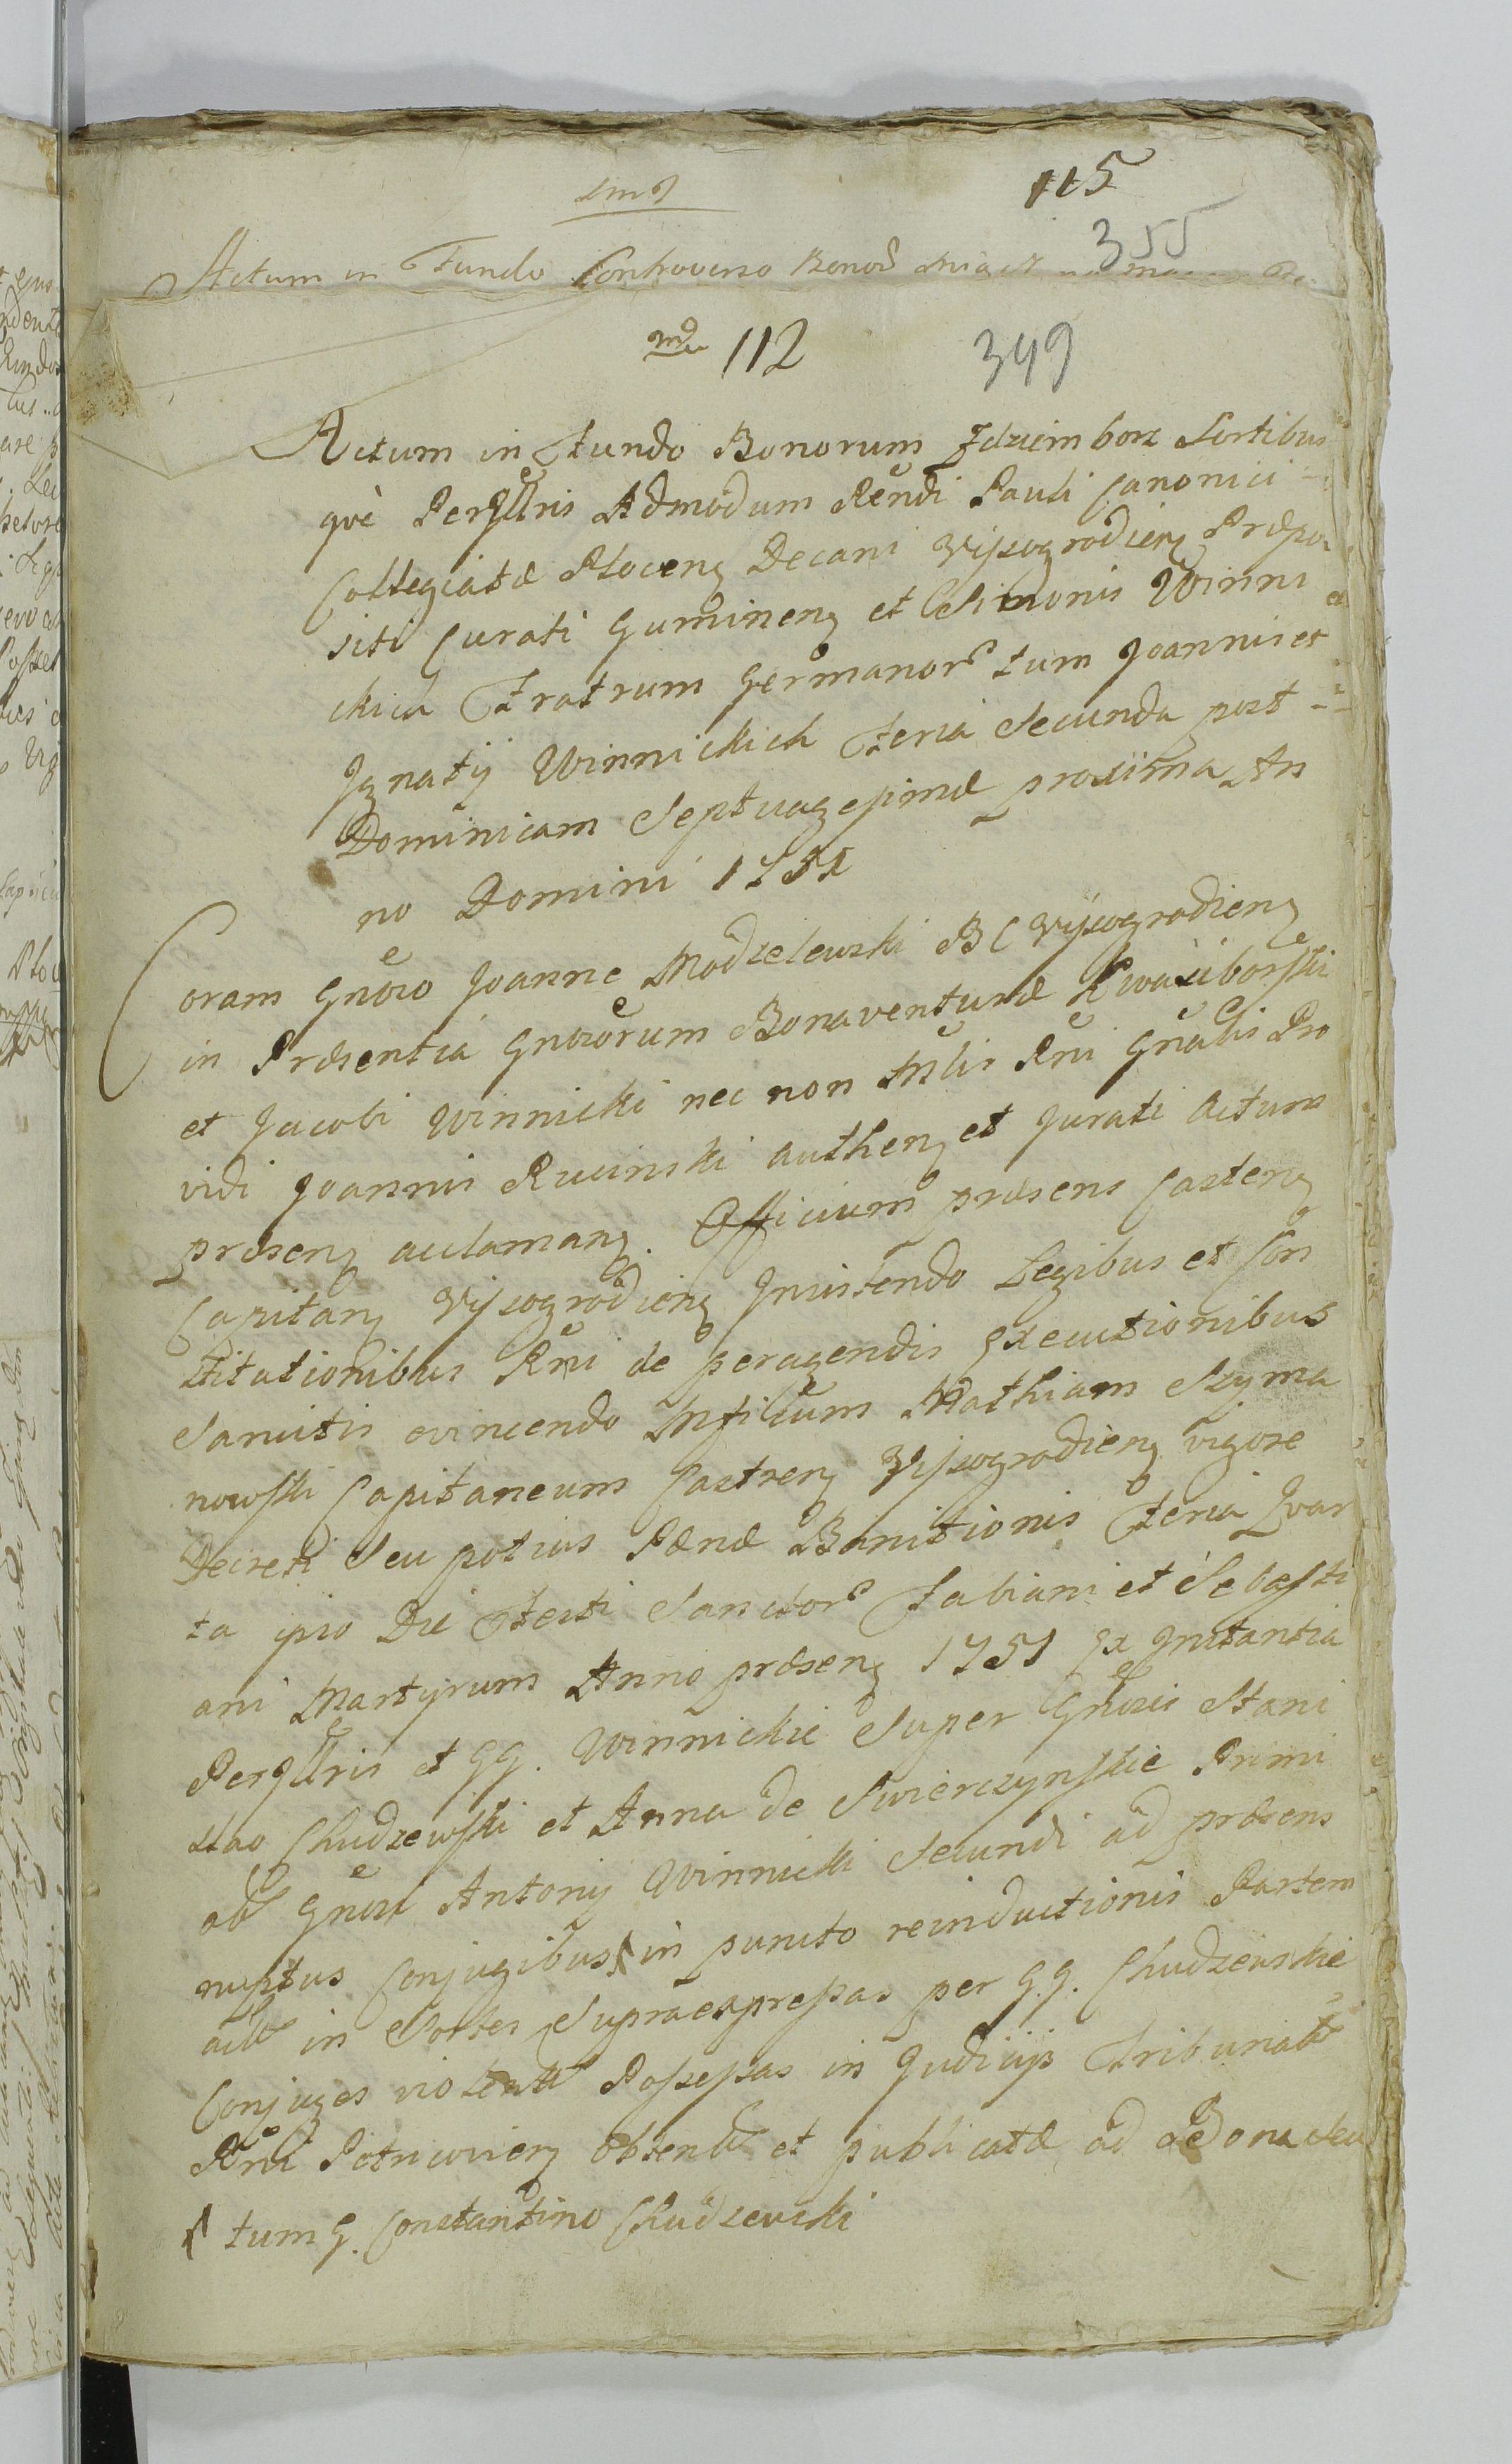 115
355
Actum in Fundo Controverso Bonor
112
349
Actum in Fundo Bonorum Zdziemborz Sortibus
què PerIllris Admodum Rendi Pauli Canonici
Collegiatæ Plocen Decani Vyszogrodien Præpo
siti Curati Guminen et Simonis Winni
ckich Fratrum Germanor tum Joannis et
Ignatij Winnickich Feria Secunda post
Dominicam Septuagesimæ proxima An
no Domini 1751
Coram Gnoso Joanne Modzelewski B C Vyszogrodien
in Præsentia Gnosorum Bonaventuræ Kwasiborski
et Jacobi Winnicki nec non Mlis Rni Gnalis Pro
vidi Joannis Rucinski authen et Jurati Actum
præsen acclaman. Officium præsens Castren
Capitan Vyszogrodien Insistendo Legibus et Con
stitutionibus Rni de peragendis Executionibus
Sancitis evincendo Mficum Mathiam Szyma
nowski Capitaneum Castren Vyszogrodien vigore
Decreti Seu potius Pænæ Bannitionis Feria Quar
ta ipso Die Festi Sanctor Fabiani et Sebasti
ani Martyrum Anno præsen 1751 Ex Instantia
PerIllris et GG. Winnickie Super Gnosis Stani
slao Chudzewski et Anna de Swierczynskie Primi
Gnosi Antonij Winnicki Secundi ad præsens
nuptus Conjugibus in puncto reinductionis Partem
in Sortes Supraexpressas per G.G. Chudzewskie
Conjuges Possessas in Judicijs Tribunal
Rni Petricovien obtent et publicatæ ad Bona seu
tum G. Constantino Chudzewski